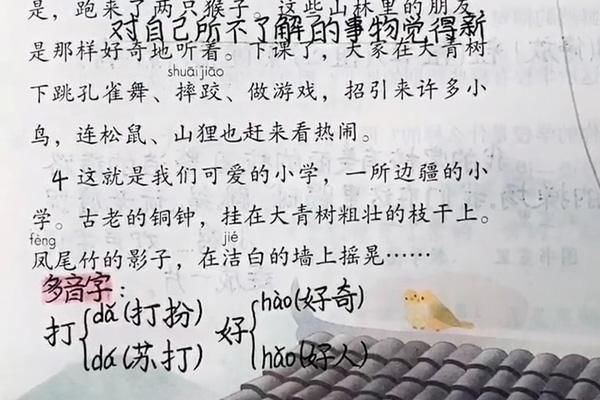 是,跑来了两只猴子。这些山林里的朋友,
对自己所不了解的事物觉得新
是那样好奇地听着。下课了,大家在大青树
shuāi jiāo
下跳孔雀舞、摔跤、做游戏,招引来许多小
鸟,连松鼠、山狸也赶来看热闹。
4 这就是我们可爱的小学,一所边疆的小
学。古老的铜钟,挂在大青树粗壮的枝干上。
fèng jié
凤尾竹的影子,在洁白的墙上摇晃……
多音字:
打{dǎ(打扮) 好{hào(好奇)
dá(苏打) hǎo(好人)